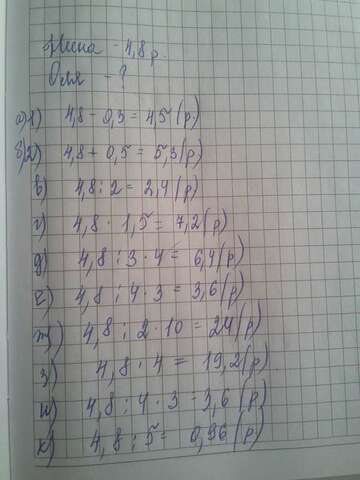 Нина - 4,8 р.
Оля - ?
а) 1) 4,8 - 0,3 = 4,5 (р.)
б) 2) 4,8 + 0,5 = 5,3 (р)
в) 4,8 : 2 = 2,4 (р)
г) 4,8 · 1,5 = 7,2 (р)
д) 4,8 : 3 · 4 = 6,4 (р)
е) 4,8 : 4 · 3 = 3,6 (р)
ж) 4,8 : 2 · 10 = 24 (р)
з) 4,8 · 4 = 19,2 (р)
и) 4,8 : 4 · 3 = 3,6 (р)
к) 4,8 : 5 = 0,96 (р)